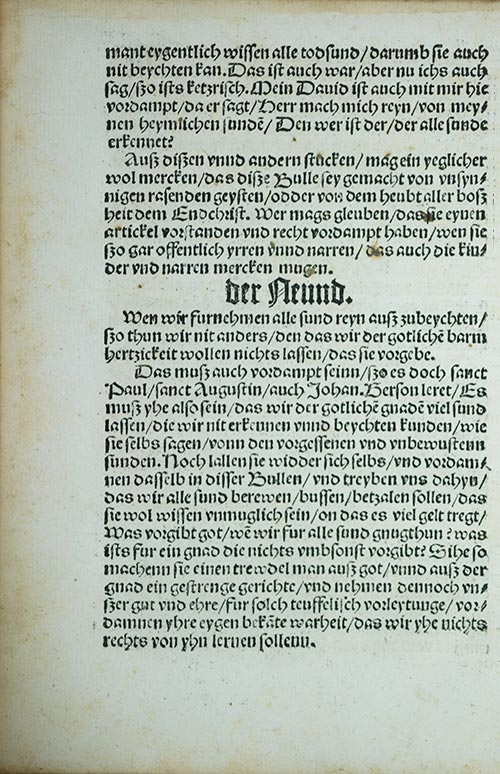 mant eygentlich wissen alle todsund/darumb sie auch
nit beychten kan. Das ist auch war/aber nu ichs auch
sag/szo ists ketzrisch. Mein Dauid ist auch mit mir hie
vordampt/da er sagt/Herr mach mich reyn/von mey⸗
nen heymlichen sundē/Den wer ist der/der alle sunde
erkennet?
Ausz diszen vnnd andern stucken/mag ein yeglicher
wol mercken/das disze Bulle sey gemacht von vnsyn⸗
nigen rasenden geysten/odder von dem heubt aller bosz
heit dem Endchrist. Wer mags gleuben/das sie eynen
artickel vorstanden vnd recht vordampt haben/wen sie
szo gar offentlich yrren vnnd narren/das auch die kin⸗
der vnd narren mercken mugen.
der Neund.
Wen wir furnehmen alle sund reyn ausz zubeychten/
szo thun wir nit anders/den das wir der gotlichē barm
hertzickeit wollen nichts lassen/das sie vorgebe.
Das musz auch vordampt seinn/szo es doch sanct
Paul/sanct Augustin/auch Johan. Gerson leret/Es
musz yhe also sein/das wir der gotlichē gnadē viel sund
lassen/die wir nit erkennen vnnd beychten kunden/wie
sie selbs sagen/vonn den vorgessenen vnd vnbewustenn
sunden. Noch lallen sie widder sich selbs/vnd vordam⸗
nen dasselb in disser Bullen/vnd treyben vns dahyn/
das wir alle sund berewen/bussen/betzalen sollen/das
sie wol wissen vnmuglich sein/on das es viel gelt tregt/
Was vorgibt got/wē wir fur alle sund gnugthun? was
ists fur ein gnad die nichts vmbsonst vorgibt? Sihe so
machenn sie einen trewdel man ausz got/vnnd ausz der
gnad ein gestrenge gerichte/vnd nehmen dennoch vn⸗
szer gut vnd ehre/fur solch teuffelisch vorleytunge/vor⸗
damnen yhre eygen bekāte warheit/das wir yhe nichts
rechts von yhn lernen sollenn.